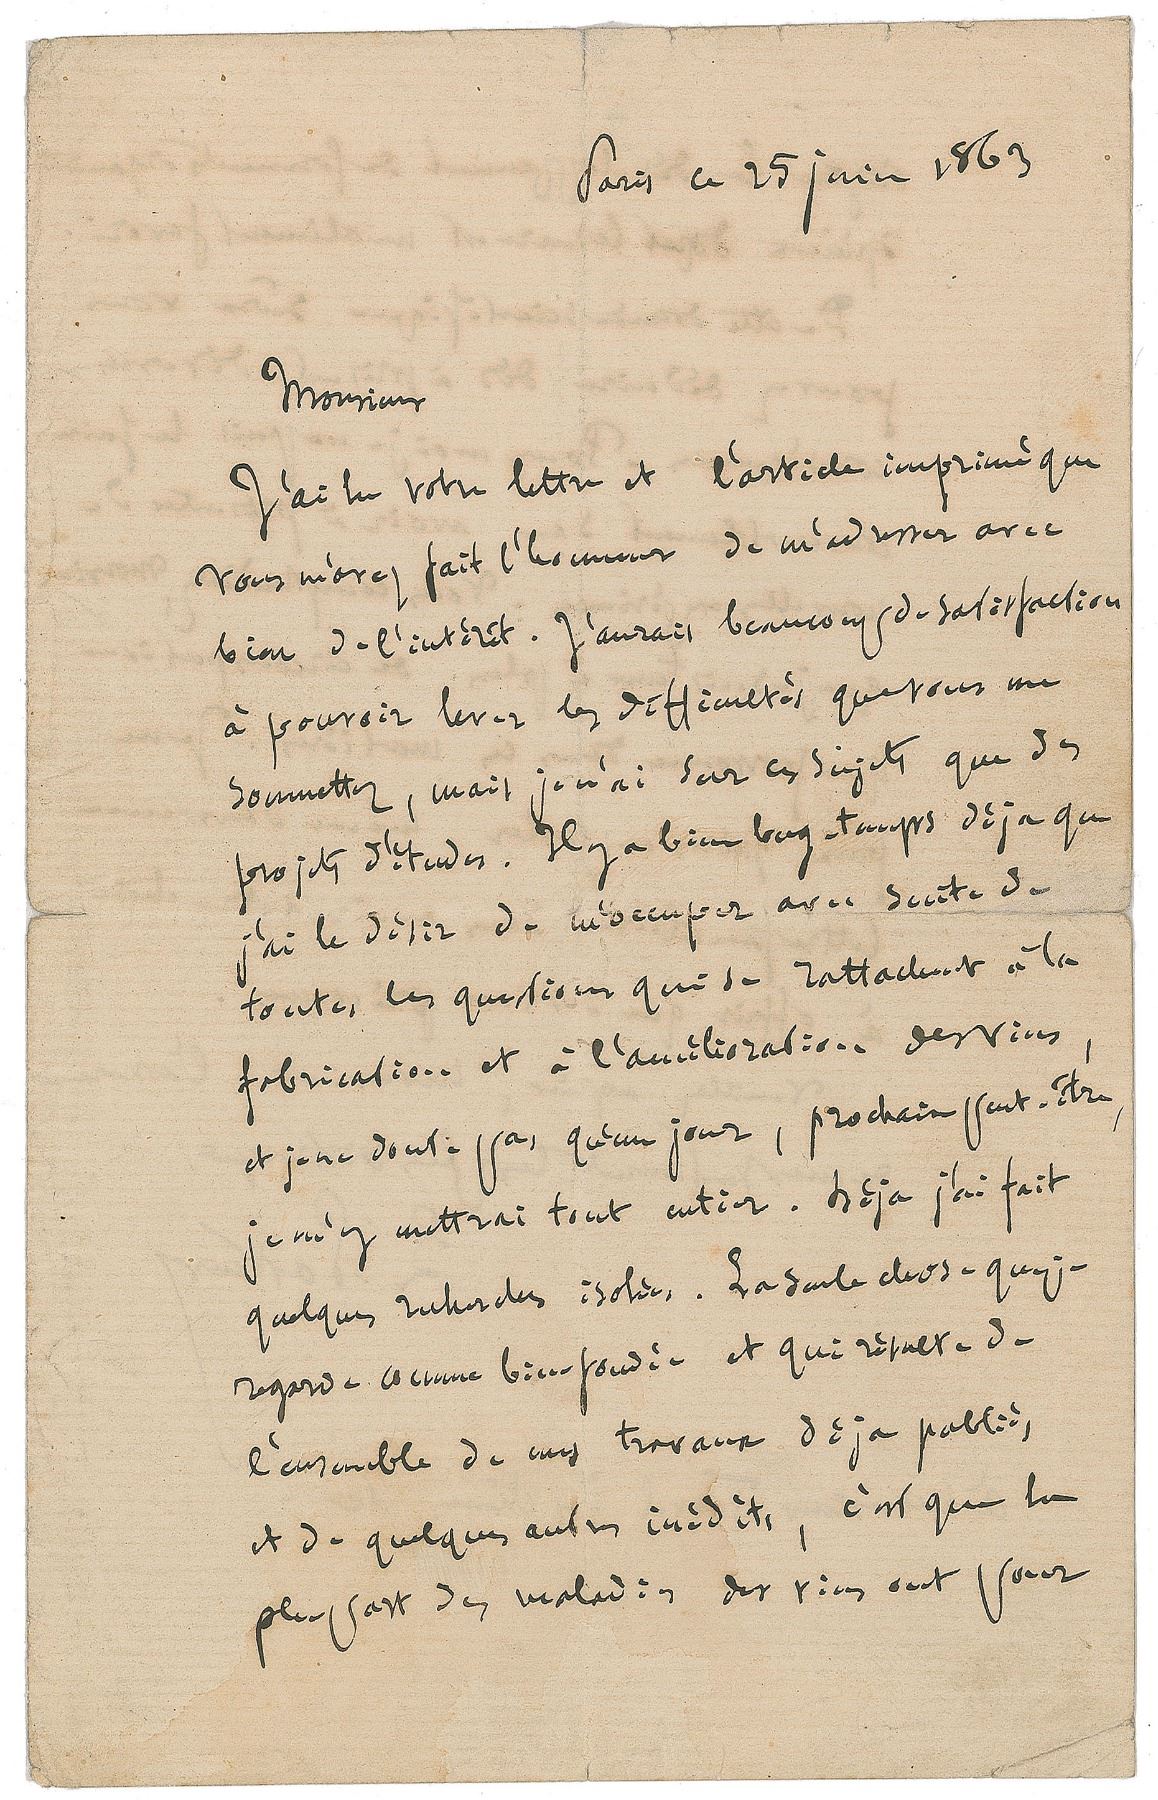 Paris ce 25 juin 1863
Monsieur
J'ai lu votre lettre et l'article imprimé que
vous m'avez fait l'honneur de m'adresser avec
bien de l'intérêt. J'aurais beaucoup de satisfaction
à pouvoir lever les difficultés que vous me
soumettez, mais je n'ai sur ces sujets que des
projets d'études. Il y a bien long-temps déja que
j'ai le désir de m'occuper avec suite de
toutes les questions qui se rattachent à la
fabrication et à l'amélioration des vins,
et je ne doute pas qu'un jour, prochain peut-être,
je m'y mettrai tout entier. Déja j'ai fait
quelques recherches isolées. La seule chose que je
regarde comme bien fondée et qui résulte de
l'ensemble de mes travaux déja publiés
et de quelques autres inédits, c'est que la
plupart des maladies des vins ont pour